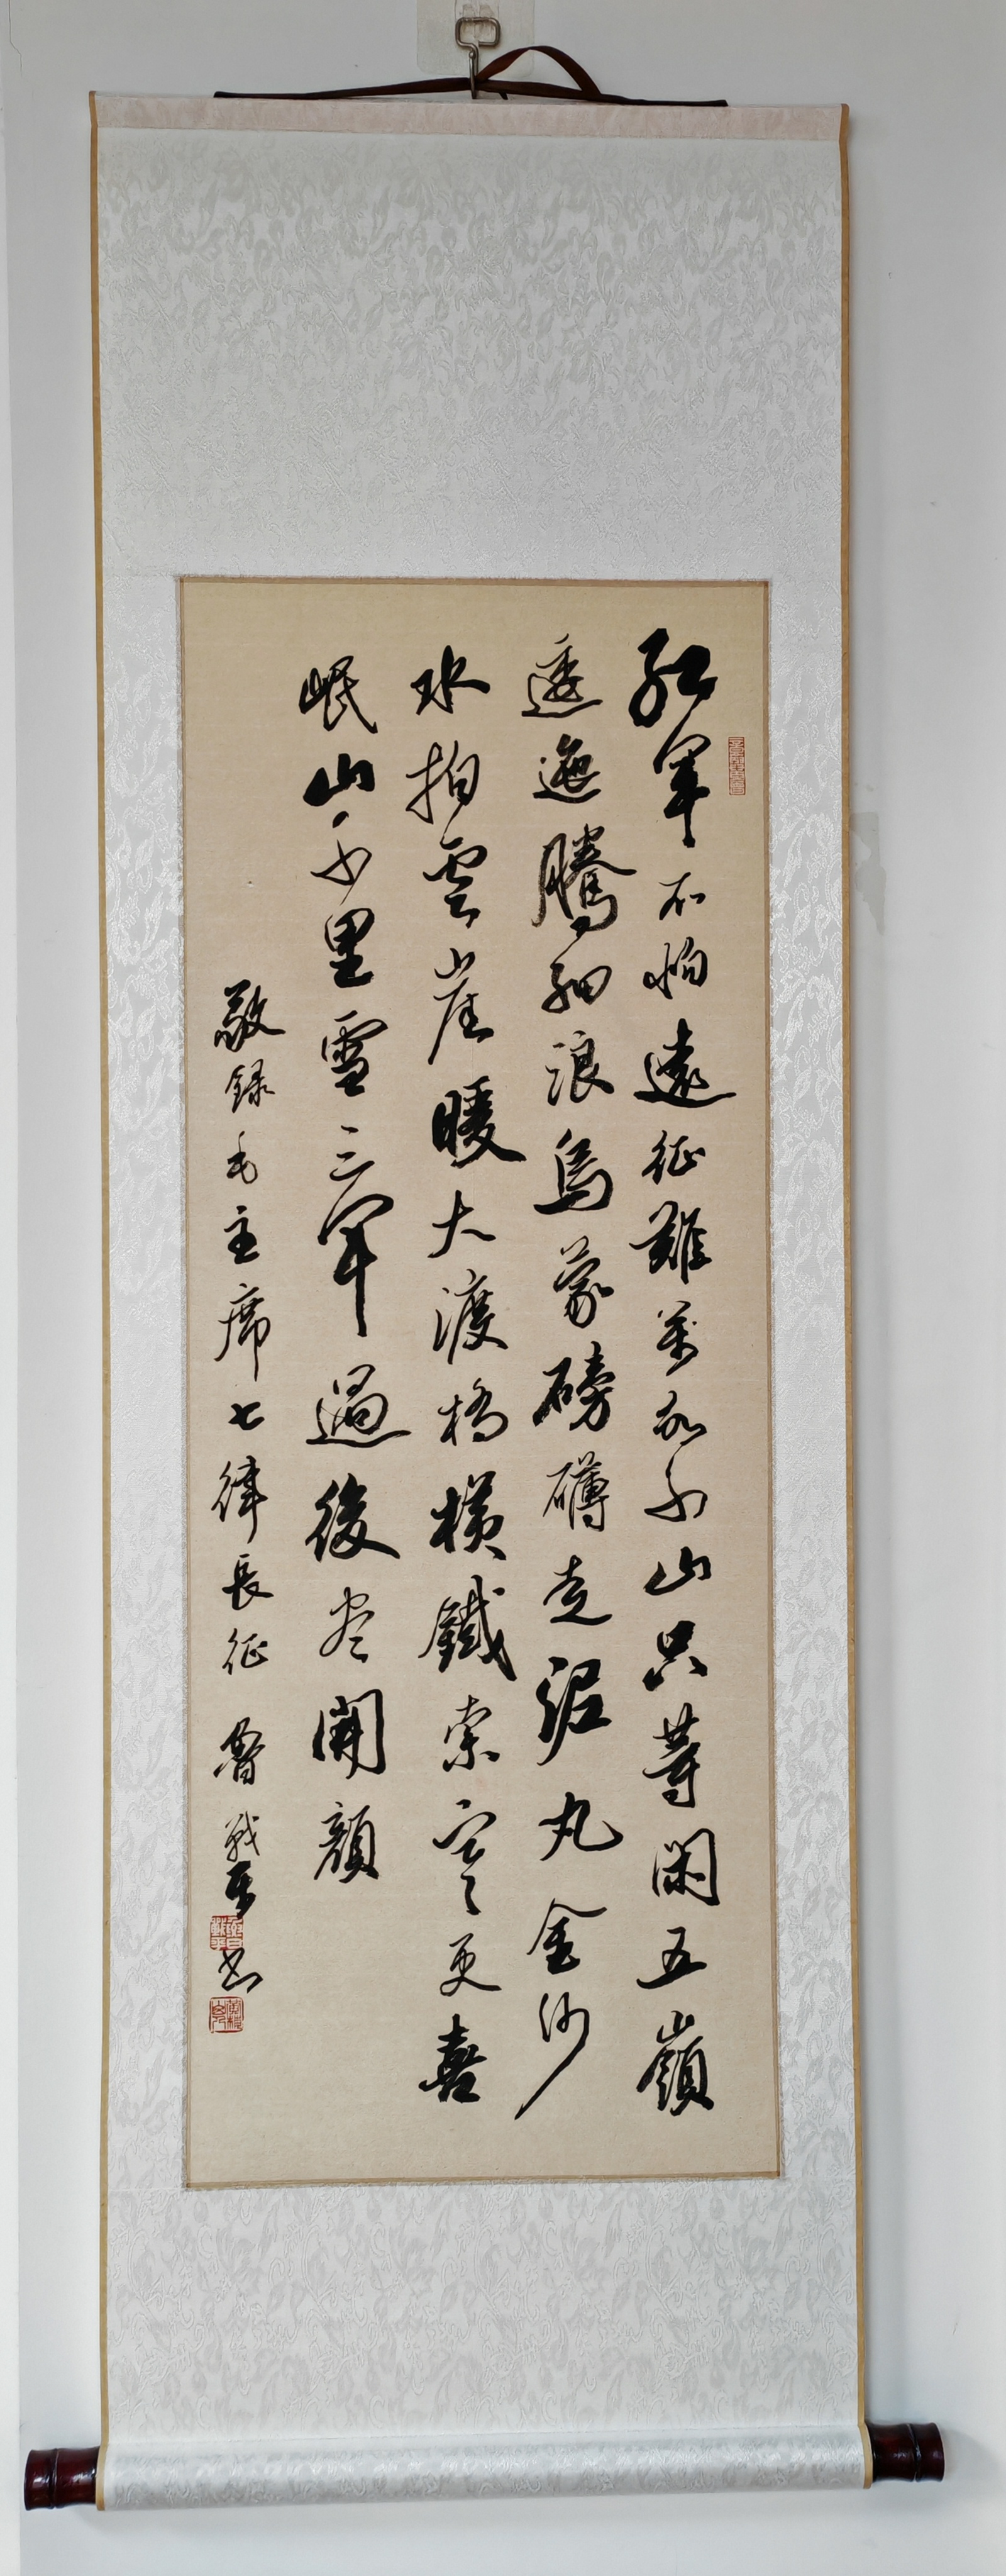 红军不怕遠征難萬水千山只等閑五嶺
逶迤騰細浪烏蒙磅礴走泥丸金沙
水拍雲崖暖大渡橋橫鐵索寒更喜
岷山千里雪三军過後尽開顔
敬録毛主席七律長征 魯戰平书